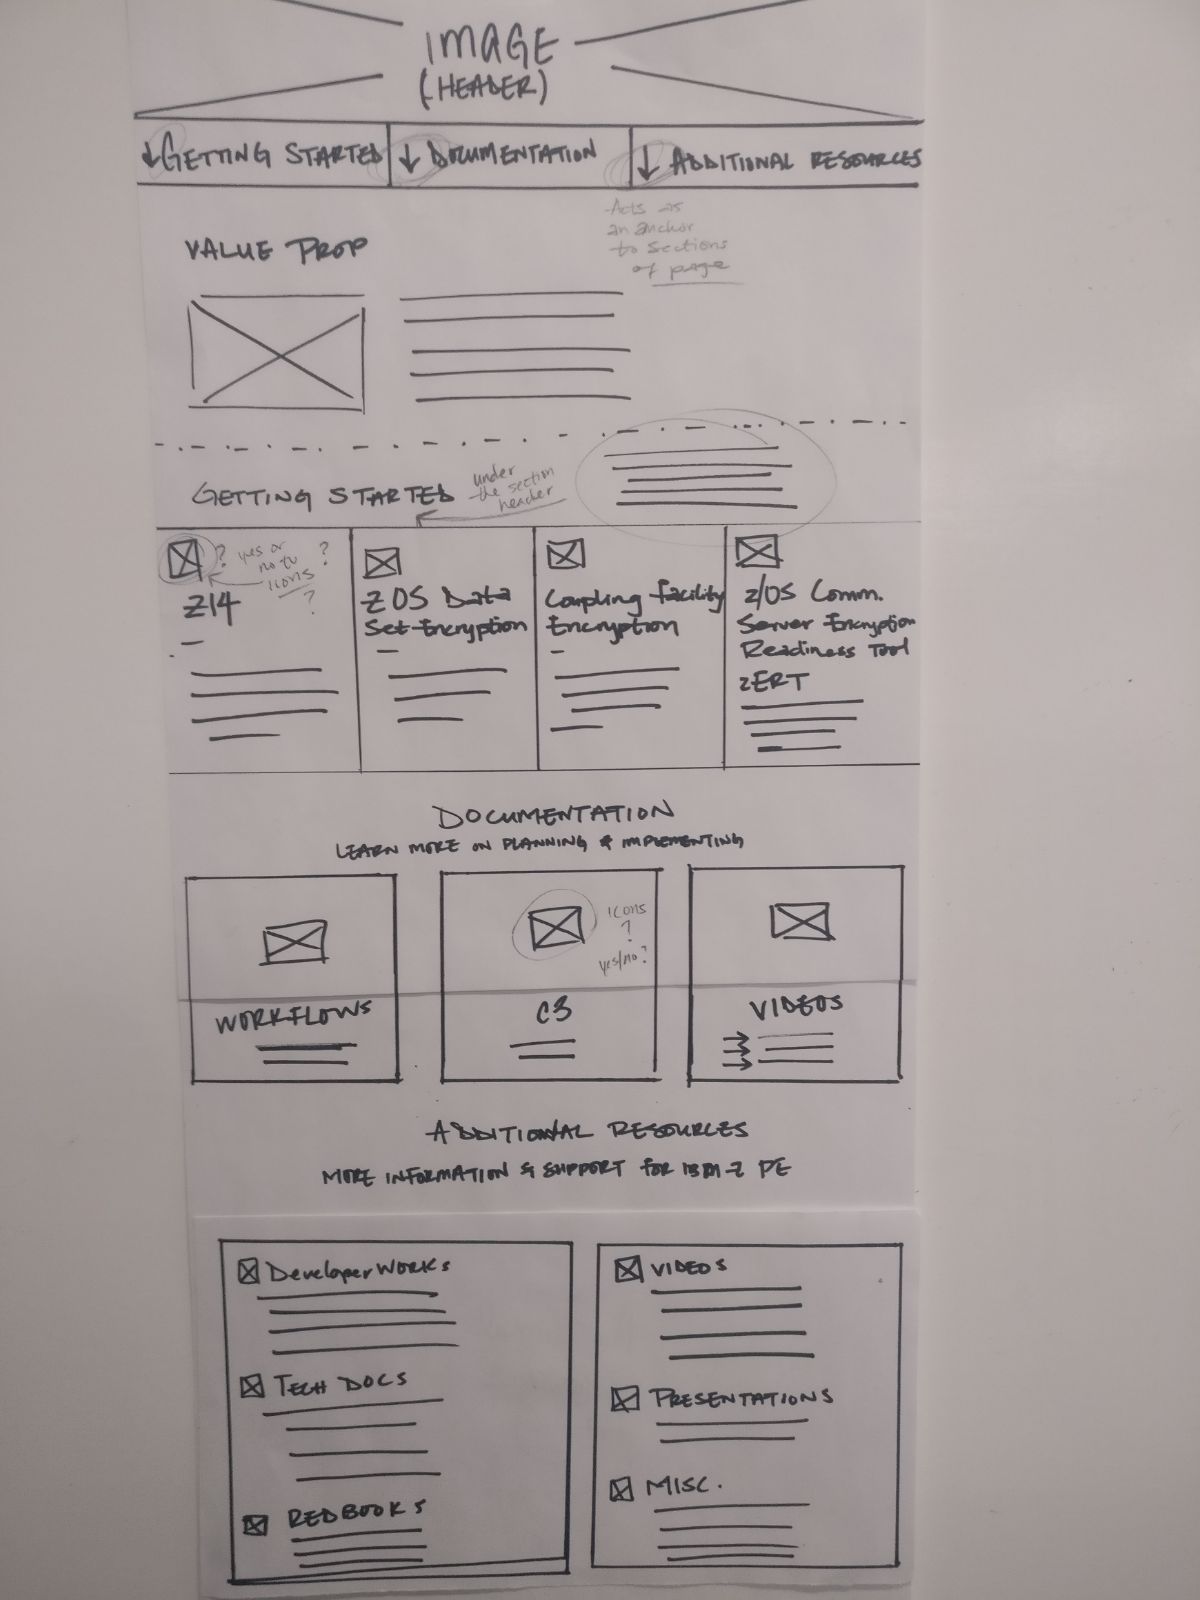 IMAGE
(HEADER)
↓ GETTING STARTED
↓ DOCUMENTATION
↓ ADDITIONAL RESOURCES
Acts as
an anchor
to sections
of page
VALUE PROP
GETTING STARTED
under
the section
header
? yes or ?
no to
icons
?
Z14
Z OS Data
Set Encryption
Coupling Facility
Encryption
z/OS Comm.
Server Encryption
Readiness Tool
zERT
DOCUMENTATION
LEARN MORE ON PLANNING & IMPLEMENTING
WORKFLOWS
icons
?
yes/no?
C3
VIDEOS
ADDITIONAL RESOURCES
MORE INFORMATION & SUPPORT FOR IBM Z PE
DeveloperWorks
TECH DOCS
REDBOOKS
VIDEOS
PRESENTATIONS
MISC.